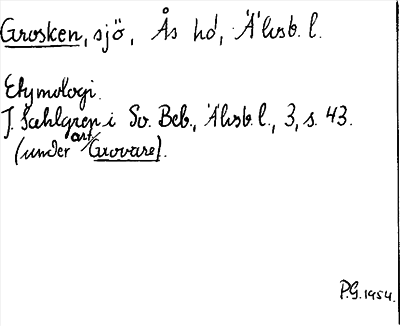 Grosken, sjö, Ås hd, Älvsb. l.
Etymologi.
J. Sahlgren i Sv. Beb., Älvsb. l., 3, s. 43.
(under art. Grovare).
P.G. 1954.